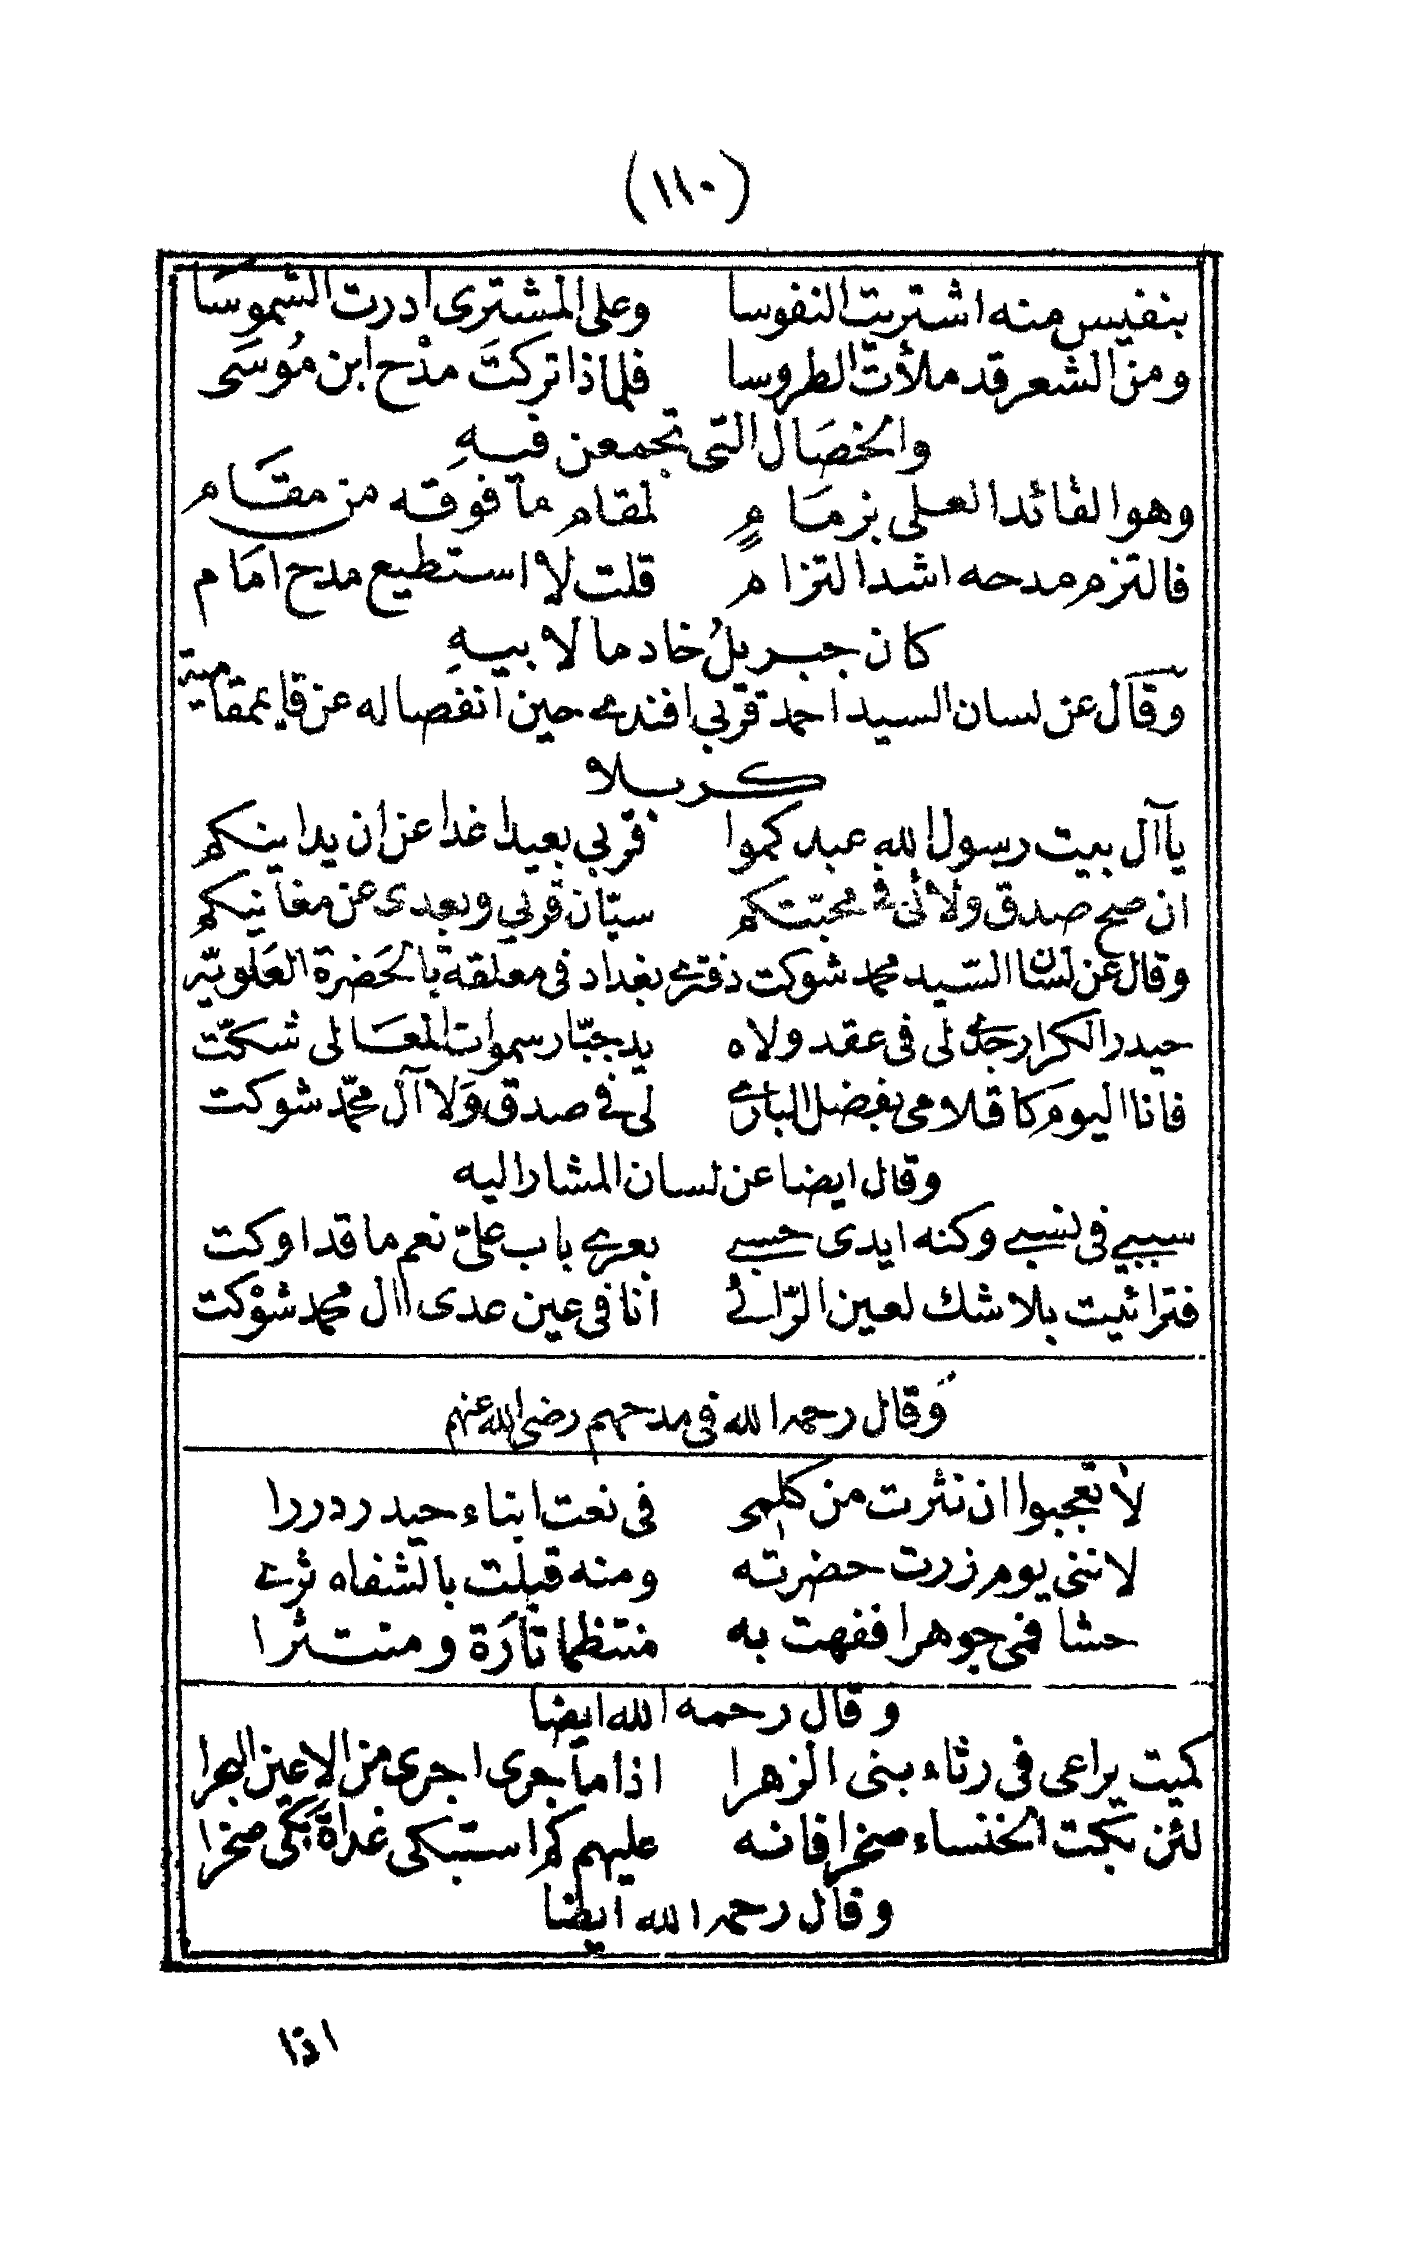 (١١٠)
بنفيس منه اشتريت النفوسا وعلى المشترى ادرت الشموسا
ومن الشعر قد ملأت الطروسا فلماذا تركت مدح ابن موسى
والخصال التى تجمعن فيه
وهو القائد العلى بزمام لمقام ما فوقه من مقام
فالتزم مدحه اشد التزام قلت لا استطيع مدح امام
كان جبريل خادما لابيه
وقال عن لسان السيد احمد قربي افندى حين انفصاله عن قايممقامية
كربلا
يا آل بيت رسول الله عبدكموا قربي بعيدا غدا عن ان يدانيكم
ان صح صدق ولائى فى محبتكم سيان قربي وبعدى عن مغانيكم
وقال عن لسان السيد محمد شوكت دفترى بغداد فى معلقة بالحضرة العلويه
حيدر الكرار رجل لى فى عقد ولاه يد جبار سموات المعالى شكت
فانا اليوم كاقلامى بفضل البارى لى فى صدق ولا آل محمد شوكت
وقال ايضا عن لسان المشار اليه
سببي فى نسبي وكنه ايدى حسبي بعرى باب على نعم ما قد اوكت
فترائيت بلا شك لعين الرائى انا فى عين عدى اال محمد شوكت
وقال رحمه الله فى مدحهم رضى الله عنهم
لا تعجبوا ان نثرت من كلمى فى نعت ابناء حيدر دررا
لاننى يوم زرت حضرته ومنه قبلت بالشفاه ثرى
حشا فمى جوهرا ففهت به منتظما تارة ومنتثرا
وقال رحمه الله ايضا
كميت يراعى فى رثاء بنى الزهرا اذا ما جرى اجرى من الاعين البهرا
لئن بكت الخنساء صخرا فانه عليهم كم استبكى غداة بكى صخرا
وقال رحمه الله ايضا
اذا